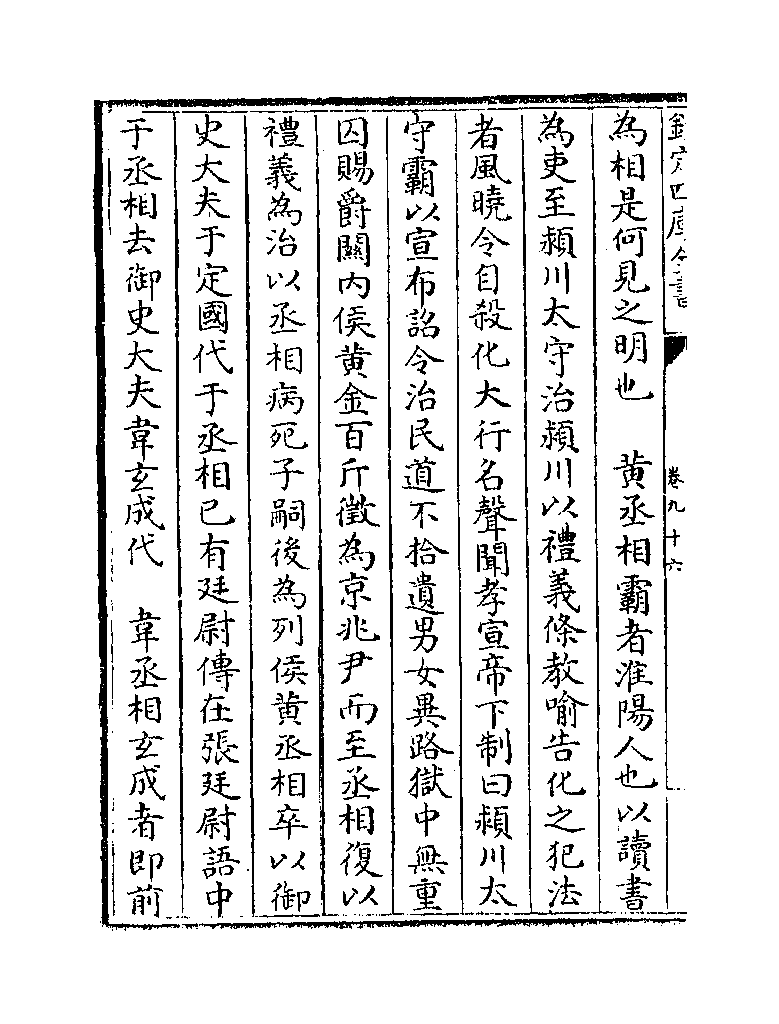 欽定四庫全書
卷九十六
為相是何見之明也　黄丞相霸者淮陽人也以讀書
為吏至潁川太守治潁川以禮義條教喻告化之犯法
者風曉令自殺化大行名聲聞孝宣帝下制曰潁川太
守霸以宣布詔令治民道不拾遺男女異路獄中無重
囚賜爵關内侯黄金百斤徵為京兆尹而至丞相復以
禮義為治以丞相病死子嗣後為列侯黄丞相卒以御
史大夫于定國代于丞相已有廷尉傳在張廷尉語中
于丞相去御史大夫韋玄成代　韋丞相玄成者即前